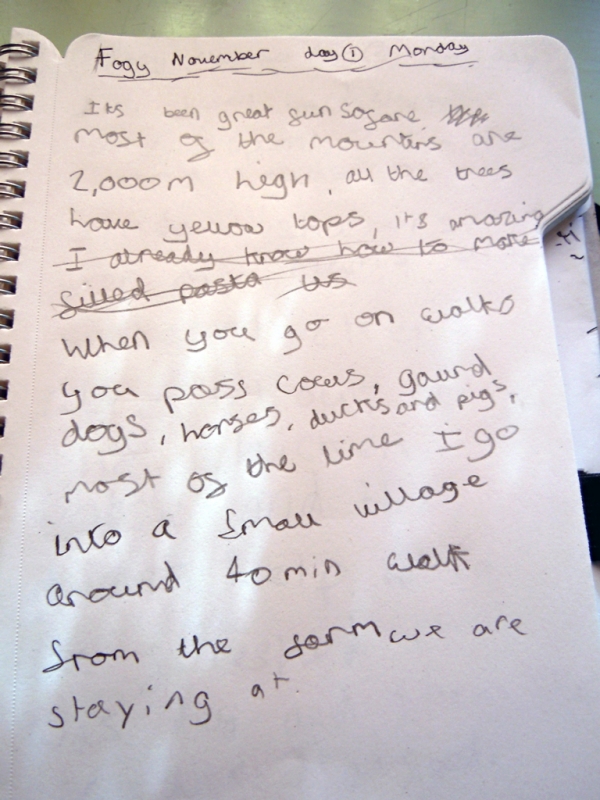 Fogy November day ① Monday
Its been great fun sofare
most of the mountins are
2,000m high, all the trees
have yellow tops, it's amazing
I already know how to make
filled pasta
When you go on walks
you pass cows, gaurd
dogs, horses, ducks and pigs,
most of the time I go
into a small village
around 40 min walk
from the farm we are
staying at.